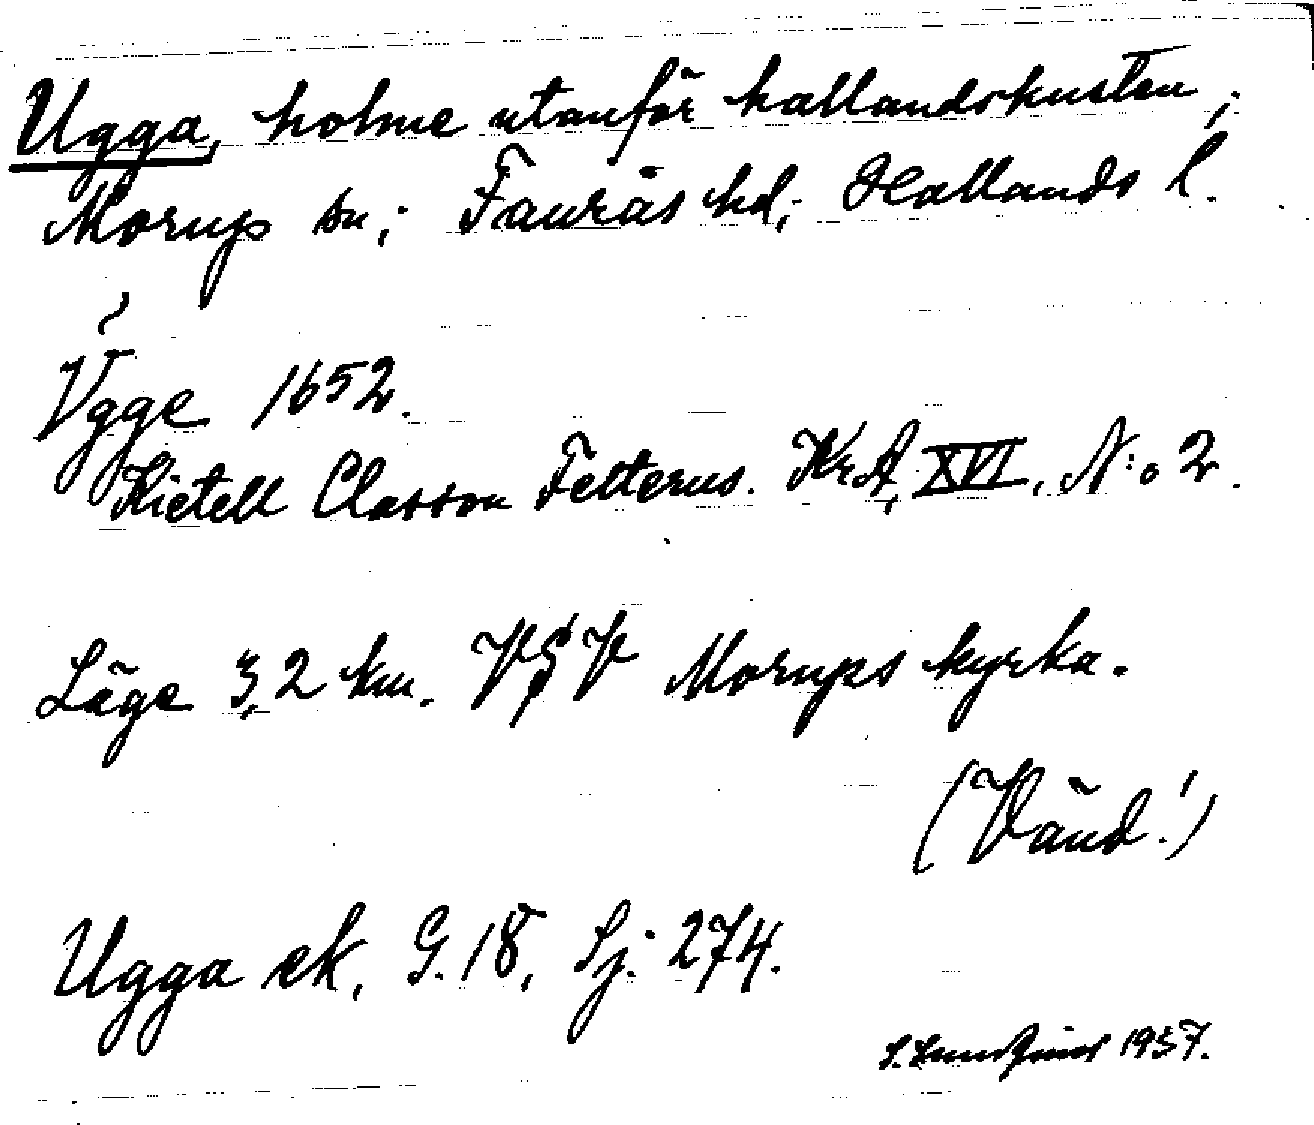 Ugga, holme utanför hallandskusten;
Morup sn; Faurås hd; Hallands l.
Vgge 1652.
Kietell Classon Felterus. KrA, XVI, N:o 2.
Läge 3,2 km. VSV Morups kyrka.
(Vänd!)
Ugga ek, G. 18, Sj: 274.
1937.